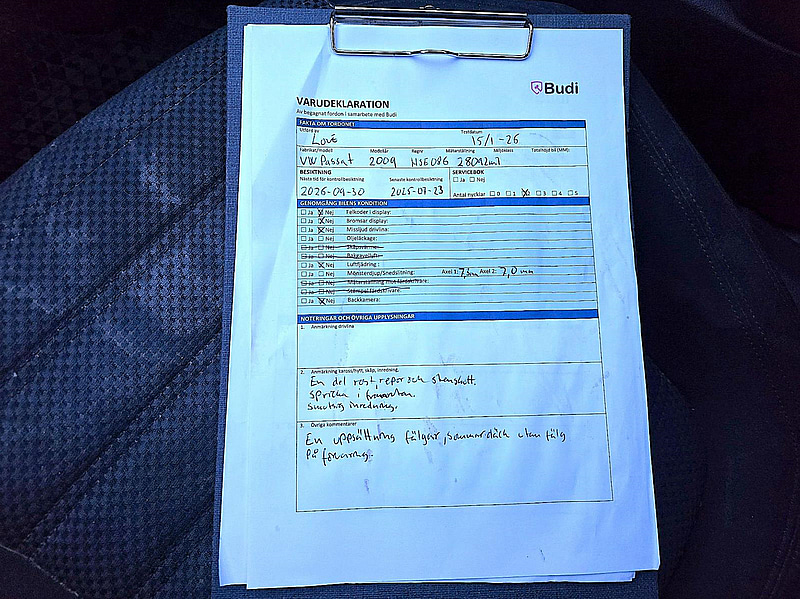 Budi
VARUDEKLARATION
Av begagnat fordon i samarbete med Budi
FAKTA OM FORDONET
Utförd av Testdatum
Love 15/1-26
Fabrikat/modell Modellår Regnr Mätarställning Miljöklass Totalhöjd bil (MM):
VW Passat 2009
BESIKTNING SERVICEBOK
Nästa tid för kontrollbesiktning Senaste kontrollbesiktning Ja Nej
2026-09-30 2025-07-23 Antal nycklar 0 1 2 3 4 5
GENOMGÅNG BILENS KONDITION
Ja Nej Felkoder i display:
Ja Nej Bromsar display:
Ja Nej Missljud drivlina:
Ja Nej Oljeläckage:
Ja Nej Skåpvärme:
Ja Nej Bakgavellyft:
Ja Nej Luftfjädring:
Ja Nej Mönsterdjup/Snedslitning: Axel 1: Axel 2: 7,0 mm
Ja Nej Mätarställning mot färdskrivare:
Ja Nej Stämpel färdskrivare:
Ja Nej Backkamera:
NOTERINGAR OCH ÖVRIGA UPPLYSNINGAR
1. Anmärkning drivlina
2. Anmärkning kaross/hytt, skåp, inredning.
En del rost, repor och stenskott.
Spricka i framrutan.
Smutsig inredning.
3. Övriga kommentarer
En uppsättning fälgar, sommardäck utan fälg
på förvaring.